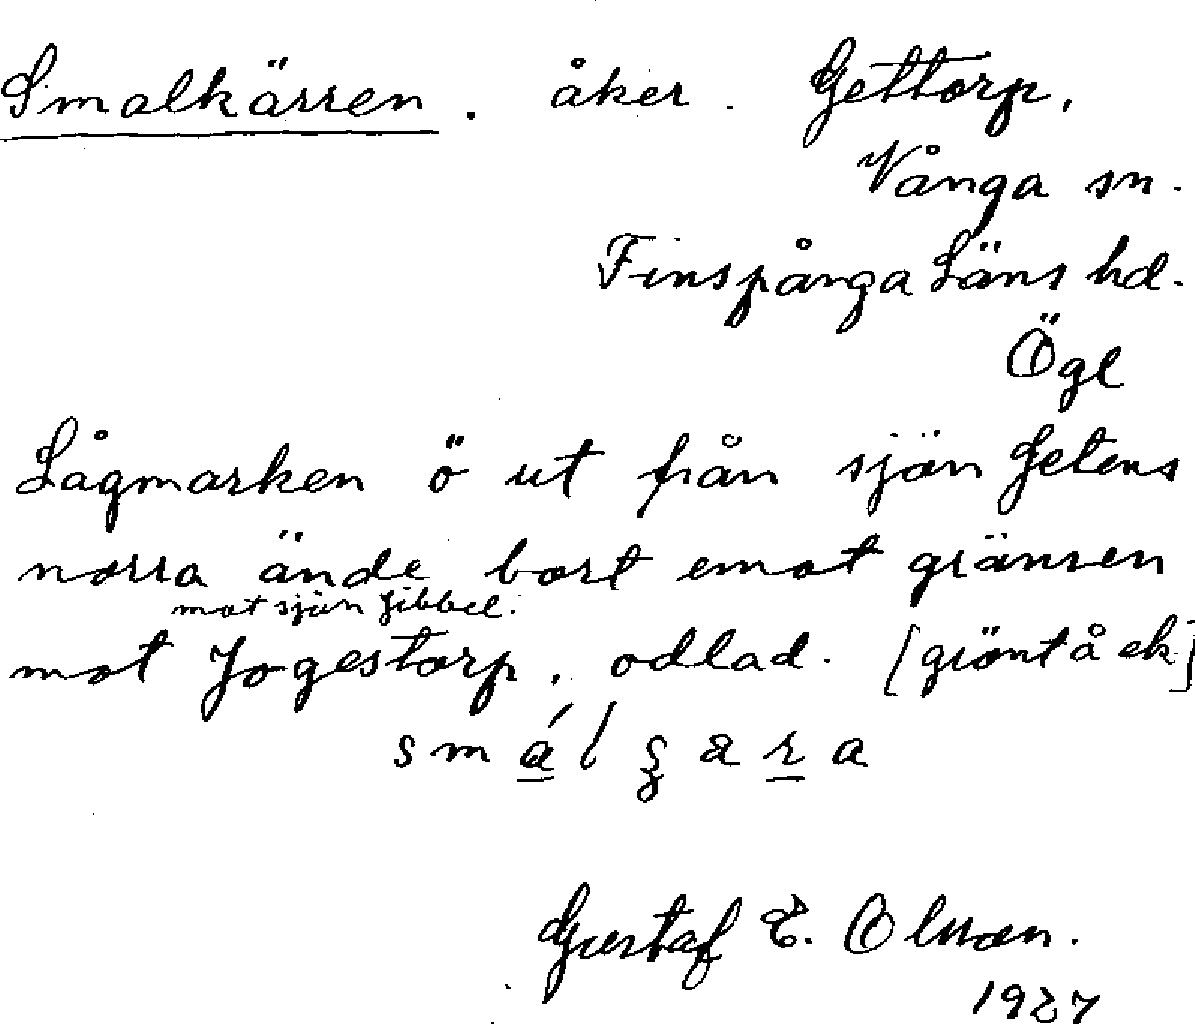 Smalkärren. åker. Gettorp,
Vånga sn.
Finspånga Läns hd.
Ögl
Lågmarken ö ut från sjön Getens
norra ände bort emot gränsen
mot sjön Gibbel.
mot Jogestorp, odlad. [giöntå ek]
Gustaf E. Olsson.
1927